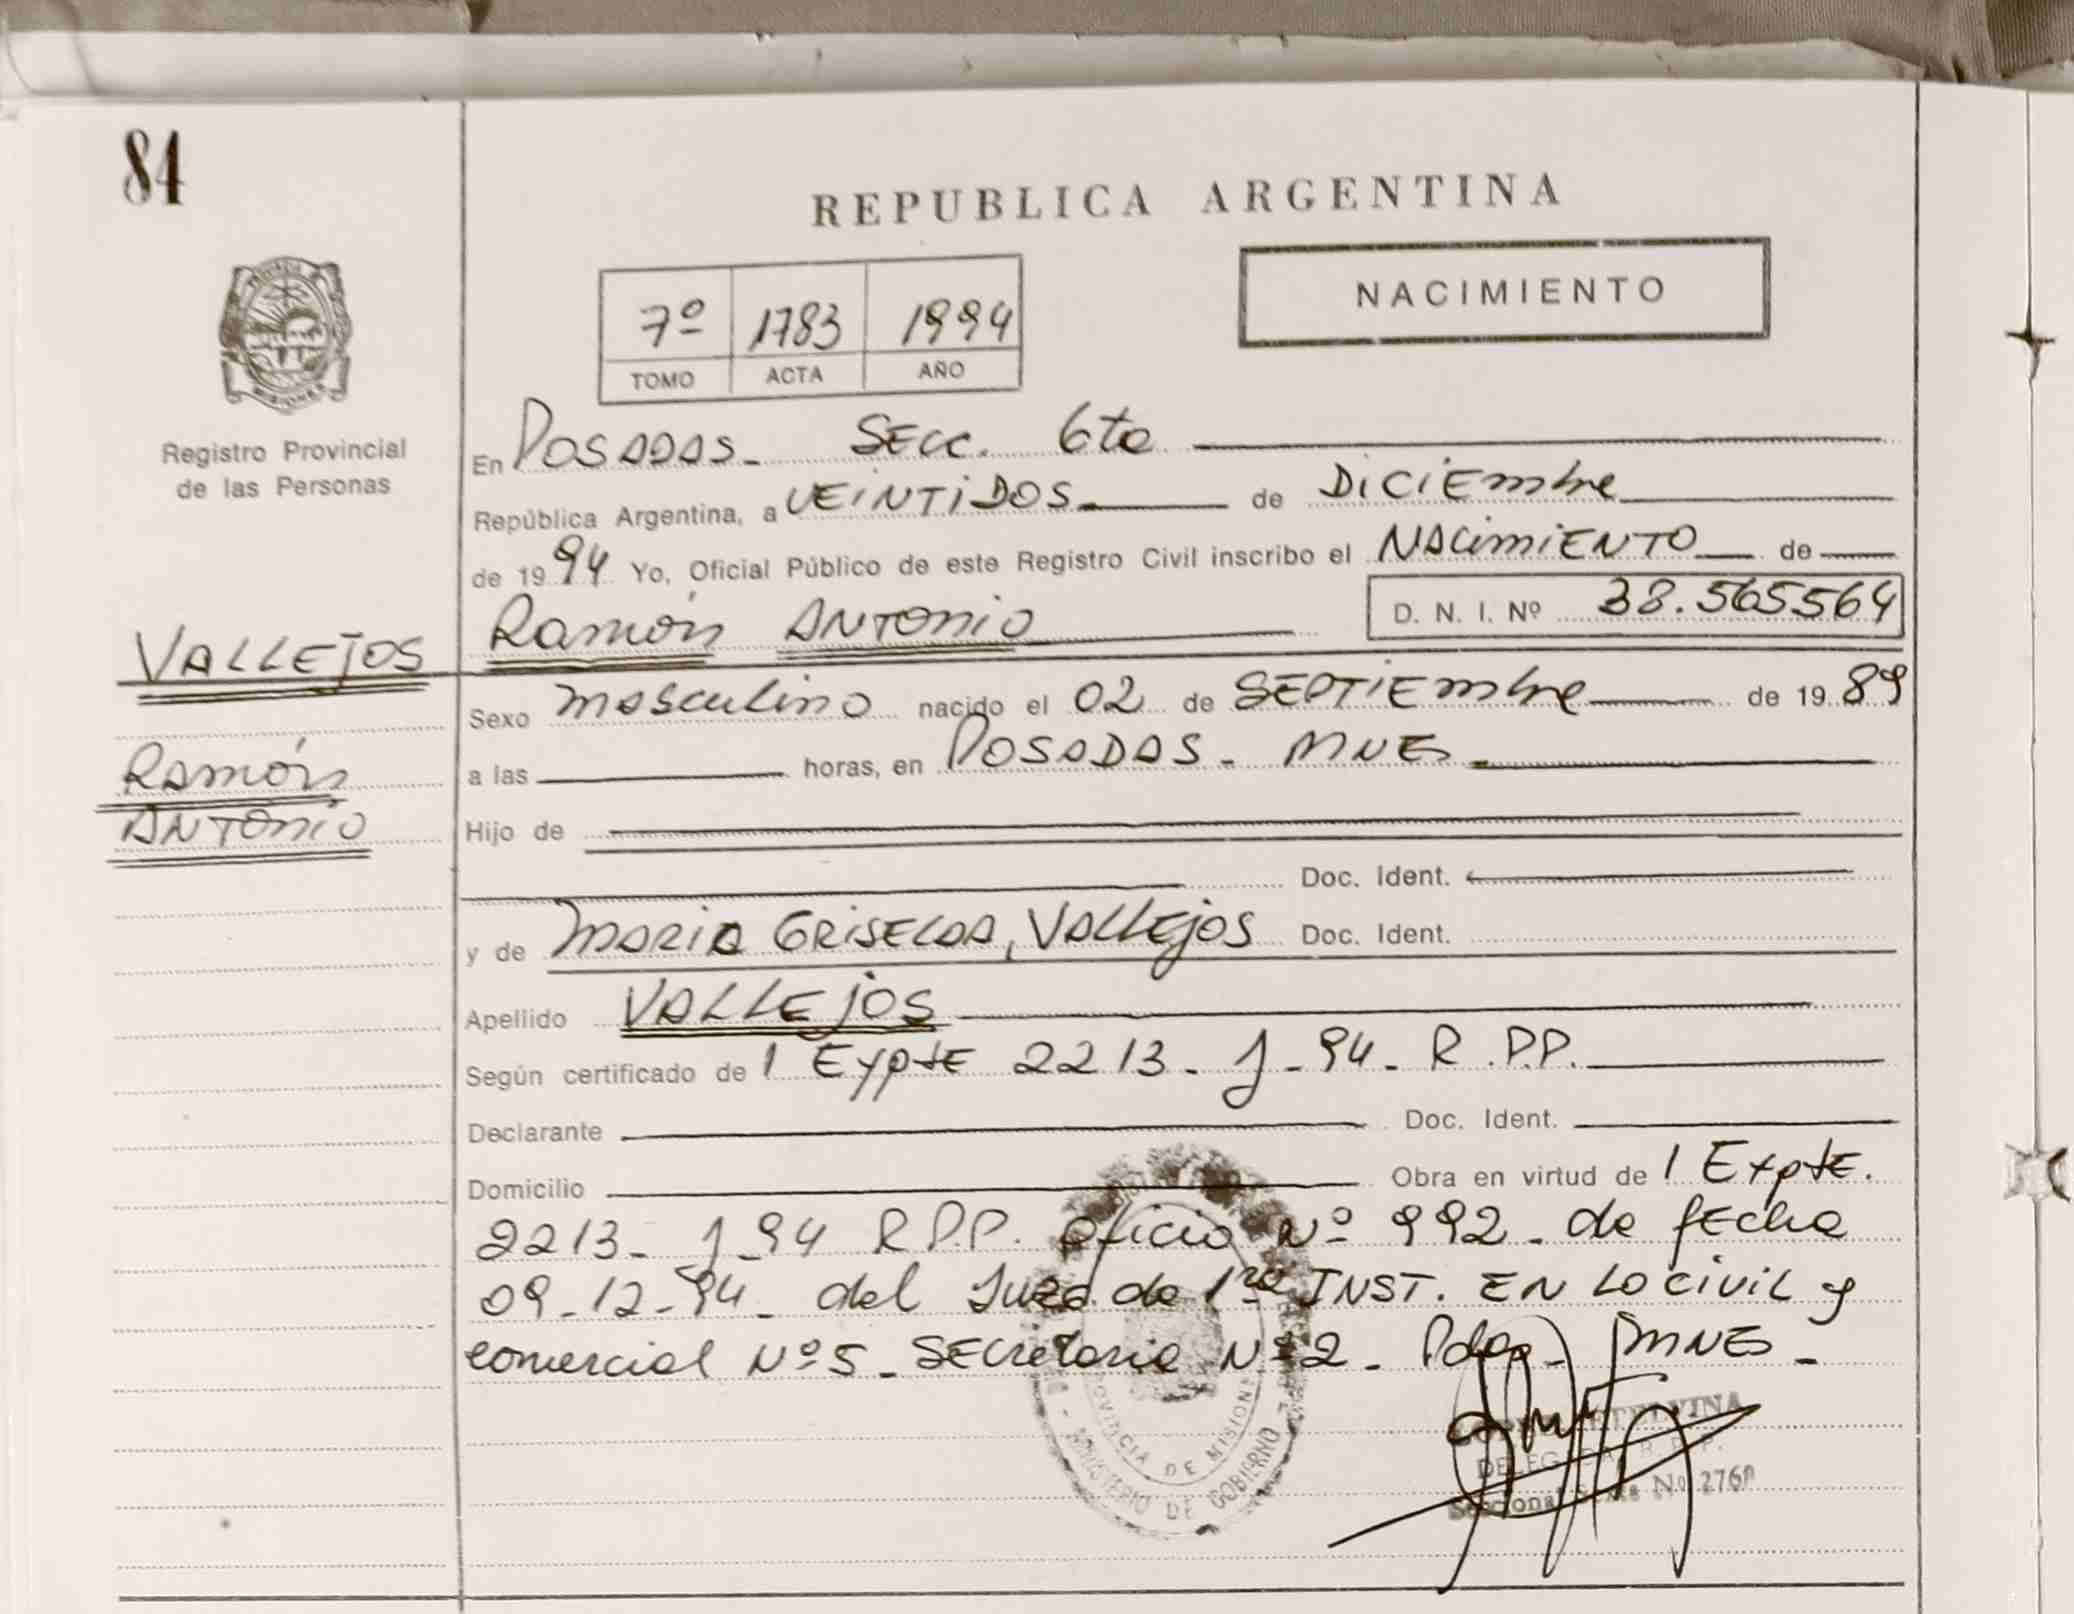 84
REPUBLICA ARGENTINA
NACIMIENTO
7º 1783 1994
TOMO ACTA AÑO
MISIONES
Registro Provincial
de las Personas
En POSADAS - SECC. 6ta
República Argentina, a VEINTIDOS de DICIEmbre
de 1994 Yo, Oficial Público de este Registro Civil inscribo el NACimiENTO de
VALLEJOS Ramón ANTONIO D. N. I. Nº 38.565564
Sexo masculino nacido el 02 de SEPTIEmbre de 1989
Ramón
a las horas, en POSADAS - MNES.
ANTONIO
Hijo de
Doc. Ident.
y de MARIA GRISELDA, VALLEjOS Doc. Ident.
Apellido VALLEjOS
Según certificado de 1 Expte 2213 - J - 94 - R.P.P.
Declarante Doc. Ident.
Domicilio Obra en virtud de 1 Expte.
2213 - J - 94 R.P.P. oficio Nº 992 - de fecha
09-12-94 - del Juzg. de 1ra INST. EN LO CIVIL y
comercial Nº 5 - SECretaria Nº 2 - Pdas - MNES -
PROVINCIA DE MISIONES
MINISTERIO DE GOBIERNO
DELEGADA R.P.P.
Seccional Sexta Nº 276